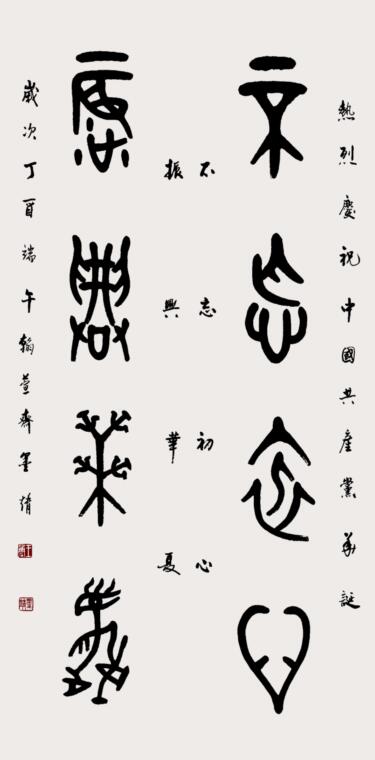 熱烈慶祝中國共產黨華誕
不忘初心
不忘初心
振興華夏
振興華夏
歲次丁酉端午翰萱齋墨